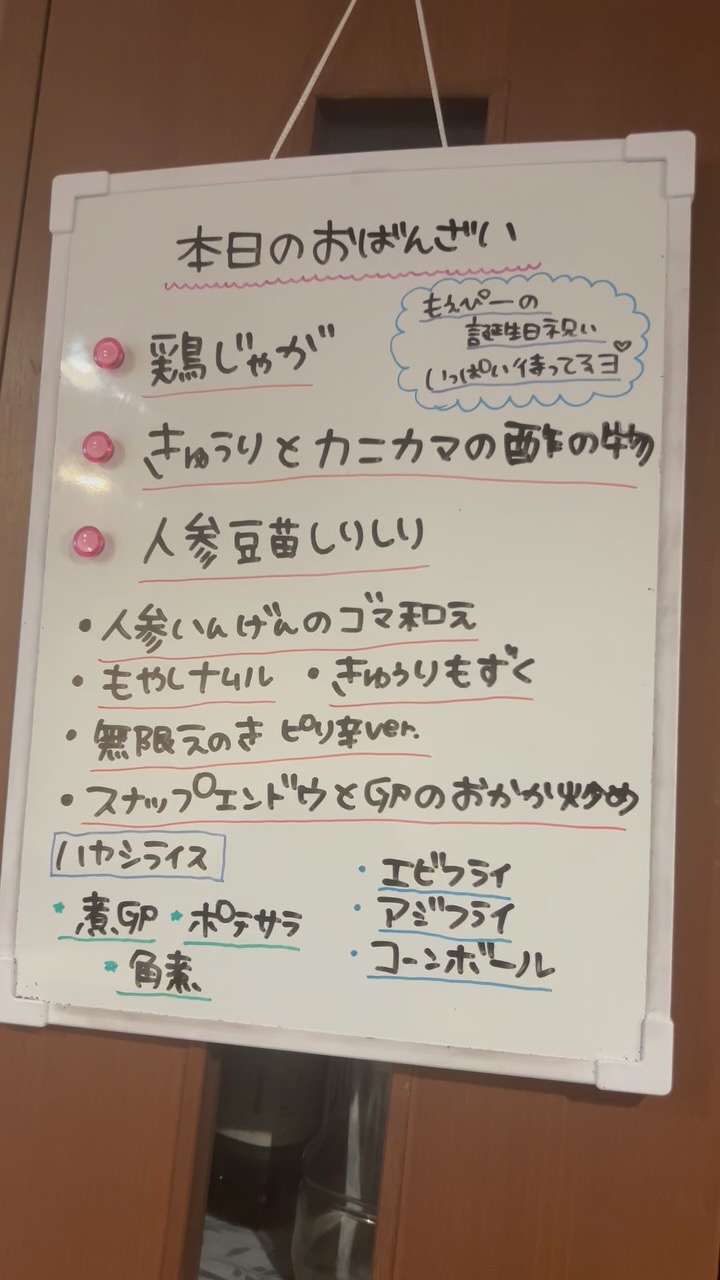 本日のおばんざい
もえぴーの
誕生日祝い
いっぱい待ってるヨ♡
鶏じゃが
きゅうりとカニカマの酢の物
人参豆苗しりしり
・人参いんげんのゴマ和え
・もやしナムル ・きゅうりもずく
・無限えのき ピリ辛ver.
・スナップエンドウとGPのおかか炒め
ハヤシライス
・エビフライ
・アジフライ
・コーンボール
*煮GP *ポテサラ
*角煮